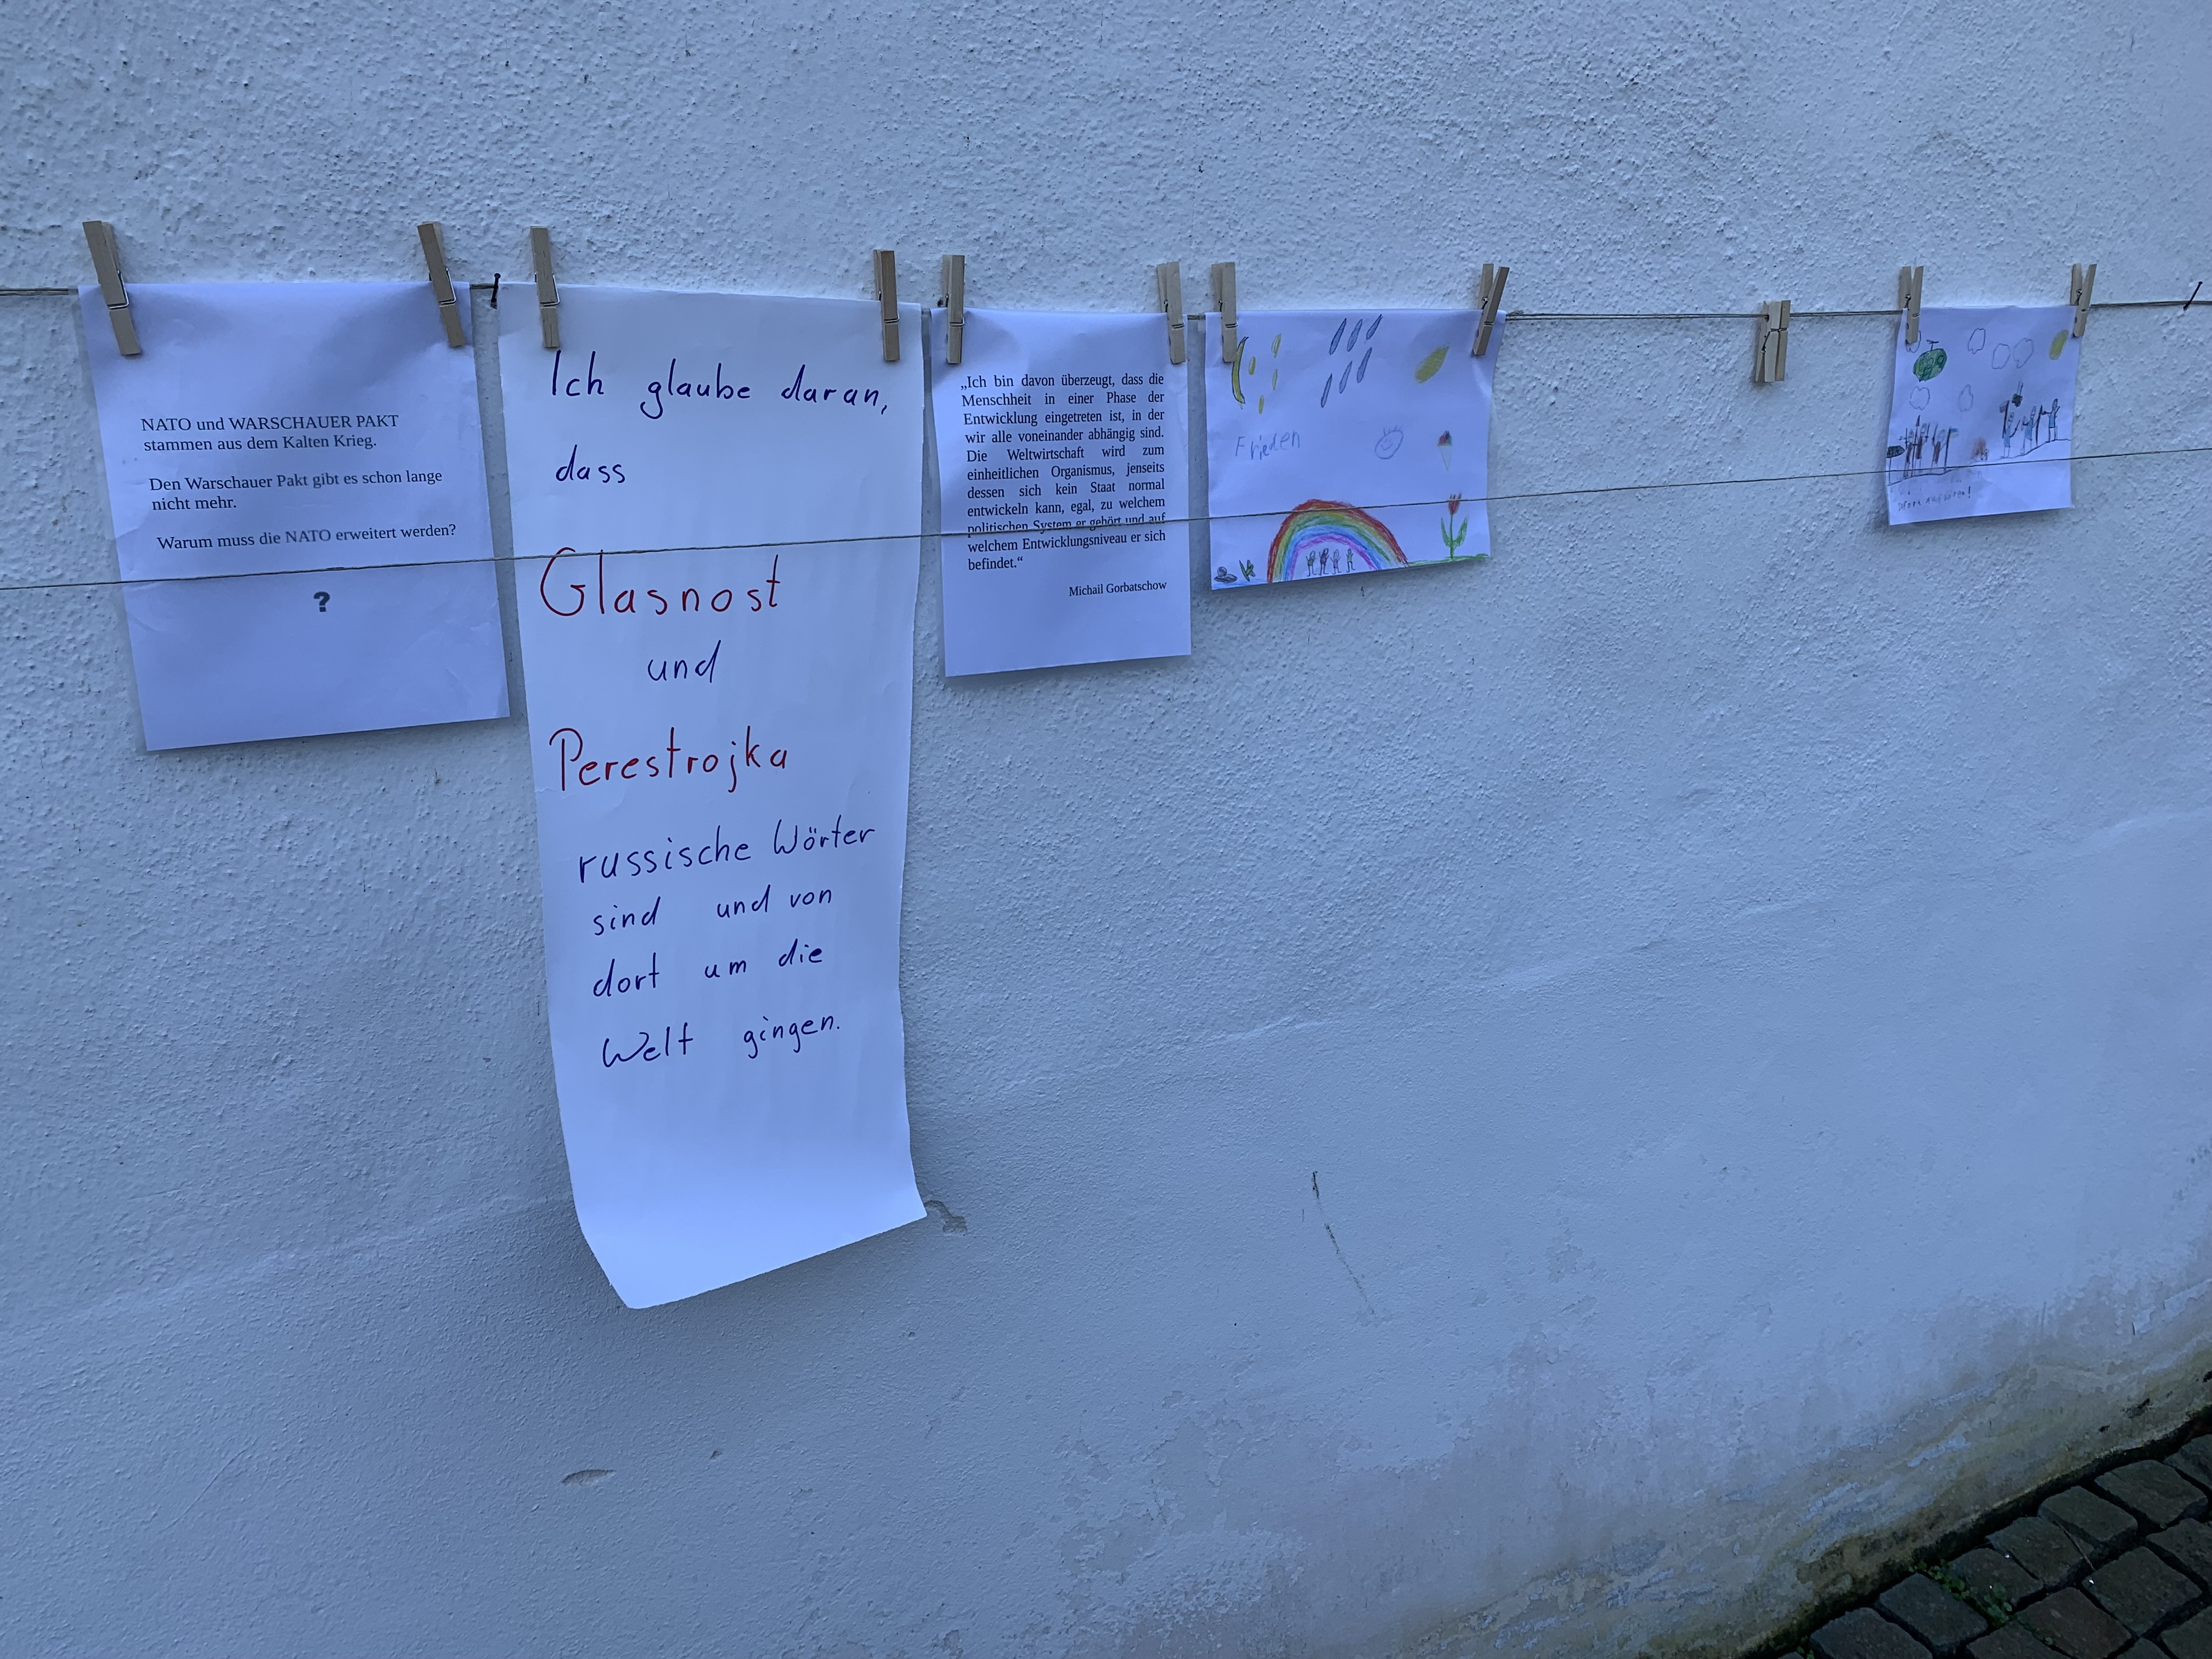 NATO und WARSCHAUER PAKT
stammen aus dem Kalten Krieg.
Den Warschauer Pakt gibt es schon lange
nicht mehr.
Warum muss die NATO erweitert werden?
?
Ich glaube daran,
dass
Glasnost
und
Perestrojka
russische Wörter
sind und von
dort um die
Welt gingen.
„Ich bin davon überzeugt, dass die
Menschheit in einer Phase der
Entwicklung eingetreten ist, in der
wir alle voneinander abhängig sind.
Die Weltwirtschaft wird zum
einheitlichen Organismus, jenseits
dessen sich kein Staat normal
entwickeln kann, egal, zu welchem
politischen System er gehört und auf
welchem Entwicklungsniveau er sich
befindet.“
Michail Gorbatschow
Frieden